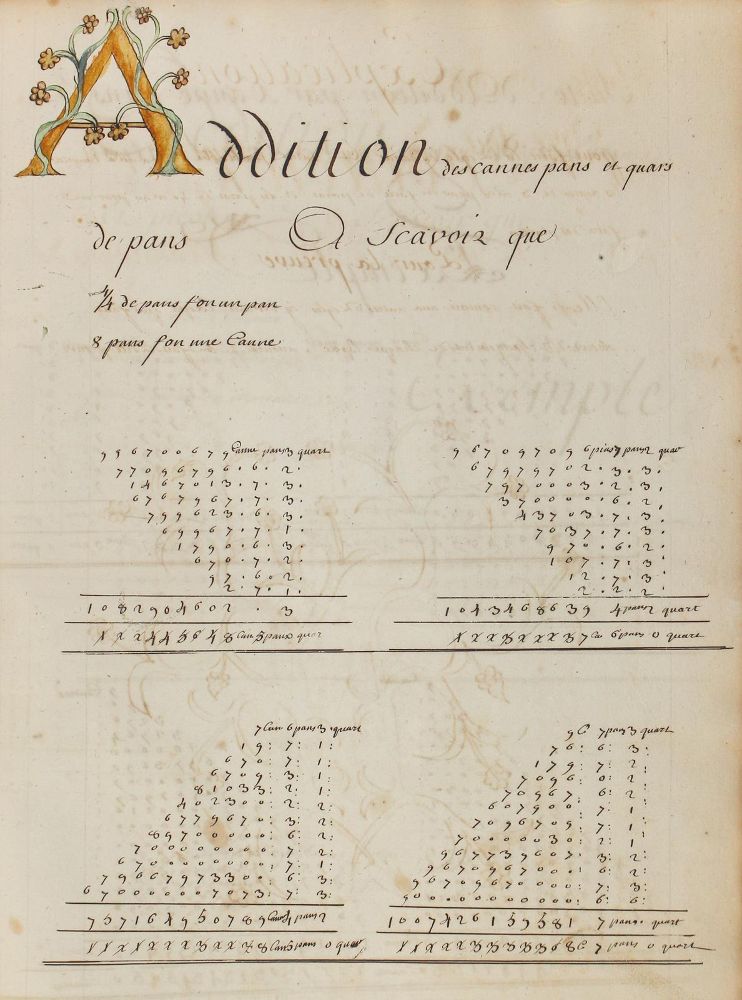 Addition des cannes pans et quars
de pans A Scavoir que
4/4 de pans fon un pan
8 pans fon une Canne
pans 3 quart
7 7 0 9 6 7 9 6 . 6 . 2 .
1 4 6 7 0 1 3 . 7 . 3 .
6 7 6 7 9 6 7 . 7 . 3 .
7 9 9 6 2 3 . 6 . 3 .
6 9 9 6 7 . 7 . 1 .
1 7 9 0 . 6 . 3 .
6 7 0 . 7 . 2 .
9 7 . 6 . 2 .
2 . 7 . 1 .
1 0 8 2 9 0 4 6 0 2 . 3
9 6 7 0 9 7 0 9 6 7 pans 2
6 7 9 7 9 7 0 2 . 3 . 3 .
7 9 7 0 0 0 3 . 2 . 3 .
3 7 0 0 0 0 . 6 . 2 .
4 3 7 0 3 . 7 . 3 .
7 0 3 7 . 7 . 3 .
9 7 0 . 6 . 2
1 0 7 . 7 . 3
1 2 . 7 . 3
2 . 2 . 2
1 0 4 3 4 6 8 6 3 9 4 pans 2 quart
7 Can 6 pans 3 quart
1 9 : 7 : 1 :
6 7 0 : 7 : 1 :
6 7 0 9 : 3 : 1 :
8 1 0 3 3 : 2 : 2 :
4 0 2 3 0 0 : 2 : 2 :
6 7 7 9 6 7 0 : 3 : 2 :
8 9 7 0 0 0 0 0 : 6 : 2 :
7 0 0 0 0 0 0 0 0 : 7 : 2 :
6 7 0 0 0 0 0 0 0 0 : 7 : 1 :
7 9 6 6 7 9 7 3 3 0 0 : 6 : 3 :
6 7 0 0 0 0 0 0 7 0 7 3 : 7 : 3 :
7 5 7 1 6 4 9 5 0 7 8 9 pans 2
9 6 7 pans 3 quart
7 6 : 6 : 3 :
1 7 9 : 7 : 2 :
7 0 9 6 : 0 : 2 :
7 0 9 6 7 : 6 : 2 :
6 0 7 9 0 0 : 7 : 1 :
7 0 9 6 7 0 9 : 7 : 1
7 0 0 0 0 0 3 0 : 2 : 1
9 6 7 7 3 9 6 0 7 : 3 : 2 :
9 6 7 0 9 6 7 0 0 0 : 6 : 2 :
9 6 7 0 9 6 7 0 0 0 0 : 7 : 3 :
9 0 0 0 0 0 0 0 0 0 0 0 : 6 : 6 :
1 0 0 7 4 2 6 1 5 9 5 8 1 7 pans 0 quart